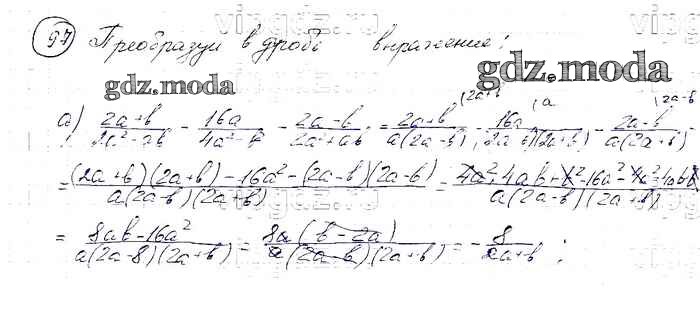 97 Преобразуй в дробь выражение:
vipgdz.ru
gdz.moda
gdz.moda
а) (2a+b)/(2a²-ab) - 16a/(4a²-b) - (2a-b)/(2a²+ab) = (2a+b)/(a(2a-b)) |2a+b - 16a/((2a-b)(2a+b)) |a - (2a-b)/(a(2a+b)) |2a-b
= ((2a+b)(2a+b)-16a²-(2a-b)(2a-b))/(a(2a-b)(2a+b)) =
a(2a-b)(2a+b)
= (8ab-16a²)/(a(2a-b)(2a+b)) = 8a(b-2a)/(a(2a-b)(2a+b)) = -8/(2a+b);